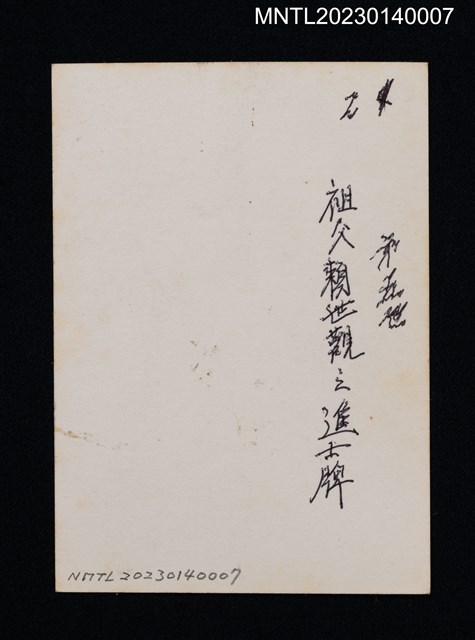 MNTL20230140007
祖父賴世觀之進士牌
NMTL20230140007